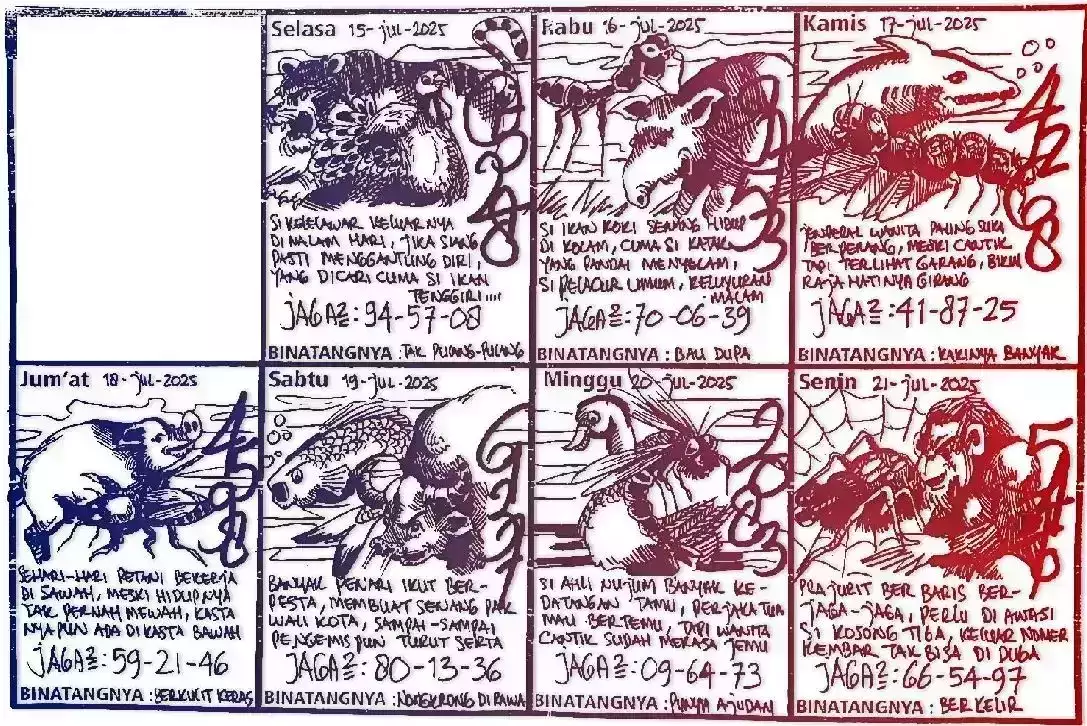 Selasa 15-jul-2025
SI KELELAWAR KELUARNYA
DI MALAM HARI, JIKA SIANG
PASTI MENGGANTUNG DIRI,
YANG DICARI CUMA SI IKAN
TENGGIRI....
JAGA2=: 94-57-08
BINATANGNYA : TAK PULANG-PULANG
Rabu 16-jul-2025
SI IKAN KOKI SENANG HIDUP
DI KOLAM, CUMA SI KATAK
YANG PANDAI MENYELAM,
SI PELACUR UMUM, KELUYURAN
MALAM
JAGA2=: 70-06-39
BINATANGNYA : BAU DUPA
Kamis 17-jul-2025
JENDERAL WANITA PALING SUKA
BERPERANG, MESKI CANTIK
TAPI TERLIHAT GARANG, BIKIN
RAJA HATINYA GIRANG
JAGA2=: 41-87-25
BINATANGNYA : KAKINYA BANYAK
Jum'at 18-jul-2025
SEHARI-HARI PETANI BEKERJA
DI SAWAH, MESKI HIDUPNYA
TAK PERNAH MEWAH, KASTA
NYA PUN ADA DI KASTA BAWAH
JAGA2=: 59-21-46
BINATANGNYA : BERKULIT KERAS
Sabtu 19-jul-2025
BANYAK PENARI IKUT BER-
PESTA, MEMBUAT SENANG PAK
WALI KOTA, SAMPAI-SAMPAI
PENGEMIS PUN TURUT SERTA
JAGA2=: 80-13-36
BINATANGNYA : NONGKRONG DI RAWA
Minggu 20-jul-2025
SI AHLI NUJUM BANYAK KE-
DATANGAN TAMU, PERJAKA TUA
MAU BERTEMU, TAPI WANITA
CANTIK SUDAH MERASA JEMU
JAGA2=: 09-64-73
BINATANGNYA : PUNYA AJUDAN
Senin 21-jul-2025
PRAJURIT BER BARIS BER-
JAGA-JAGA, PERLU DI AWASI
SI KOSONG TIGA, KELUAR NOMER
KEMBAR TAK BISA DI DUGA
JAGA2=: 66-54-97
BINATANGNYA : BERKELIR